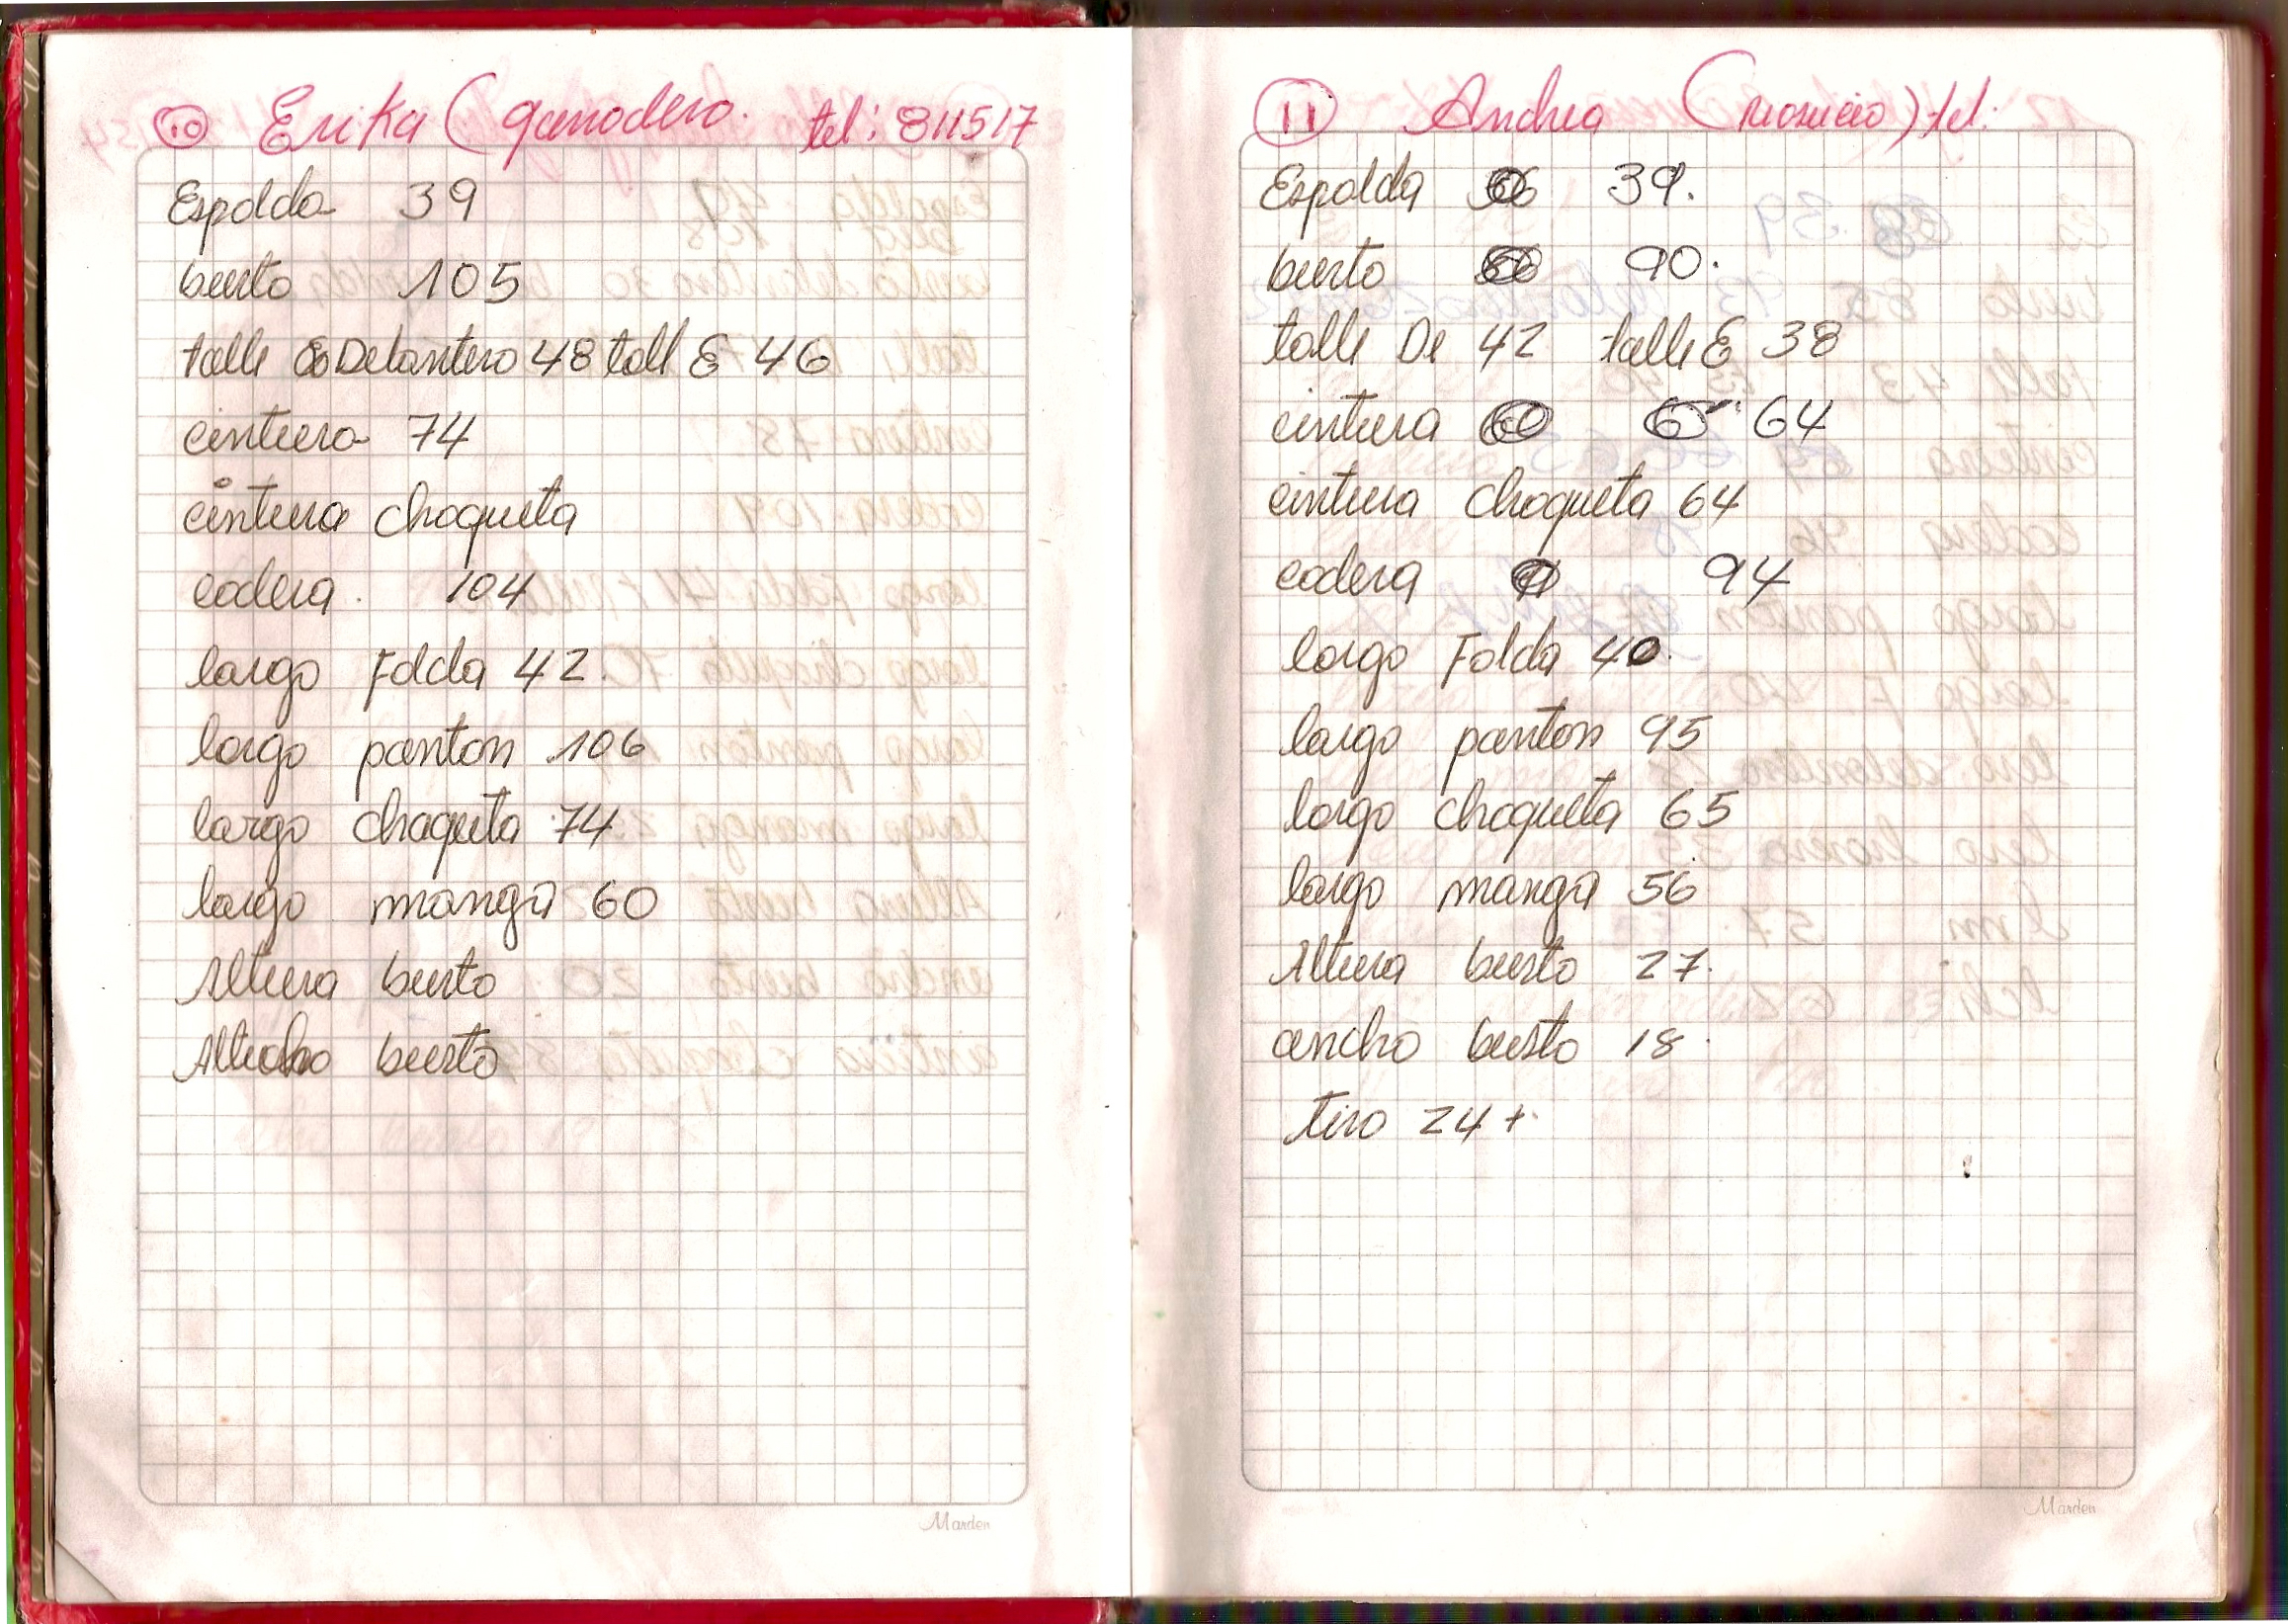 10 Erika (ganadero. tel: 811517
Espalda 39
busto 105
talle Delantero 48 tall E 46
cintura 74
cintura chaqueta
cadera. 104
largo Falda 42.
largo panton 106
largo chaqueta 74
largo manga 60
Altura busto
busto
Marden
11 Andrea (riosucio) tel:
Espalda 39.
busto 90.
talle De 42 talle E 38
cintura 64
cintura chaqueta 64
cadera 94
largo Falda 40.
largo panton 95
largo chaqueta 65
largo manga 56
Altura busto 27.
ancho busto 18.
tiro 24 +.
Marden